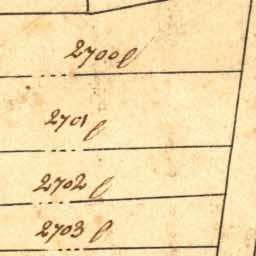 2700 l
2701 l
2702 l
2703 l